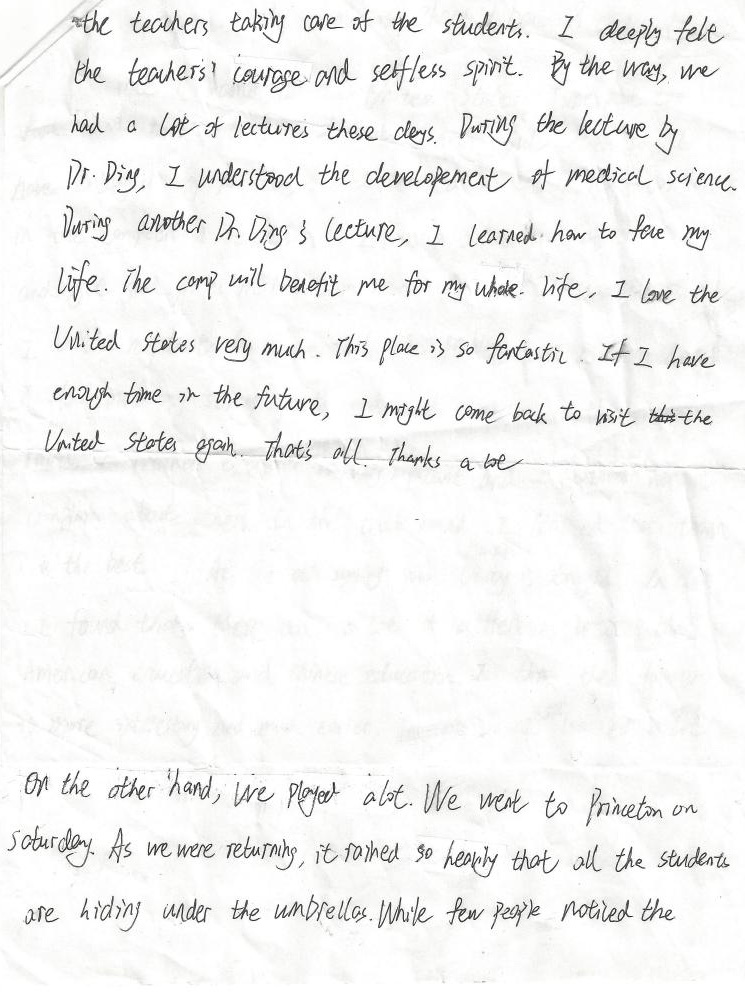 the teachers taking care of the students. I deeply felt
the teachers' courage and selfless spirit. By the way, we
had a lot of lectures these days. During the lecture by
Dr. Ding, I understood the developement of medical science.
During another Dr. Ding's lecture, I learned how to face my
life. The camp will benefit me for my whole life. I love the
United States very much. This place is so fantastic. If I have
enough time in the future, I might come back to visit this the
United States again. That's all. Thanks a lot
On the other hand, we played a lot. We went to Princeton on
Saturday. As we were returning, it rained so heavily that all the students
are hiding under the umbrellas. While few people noticed the